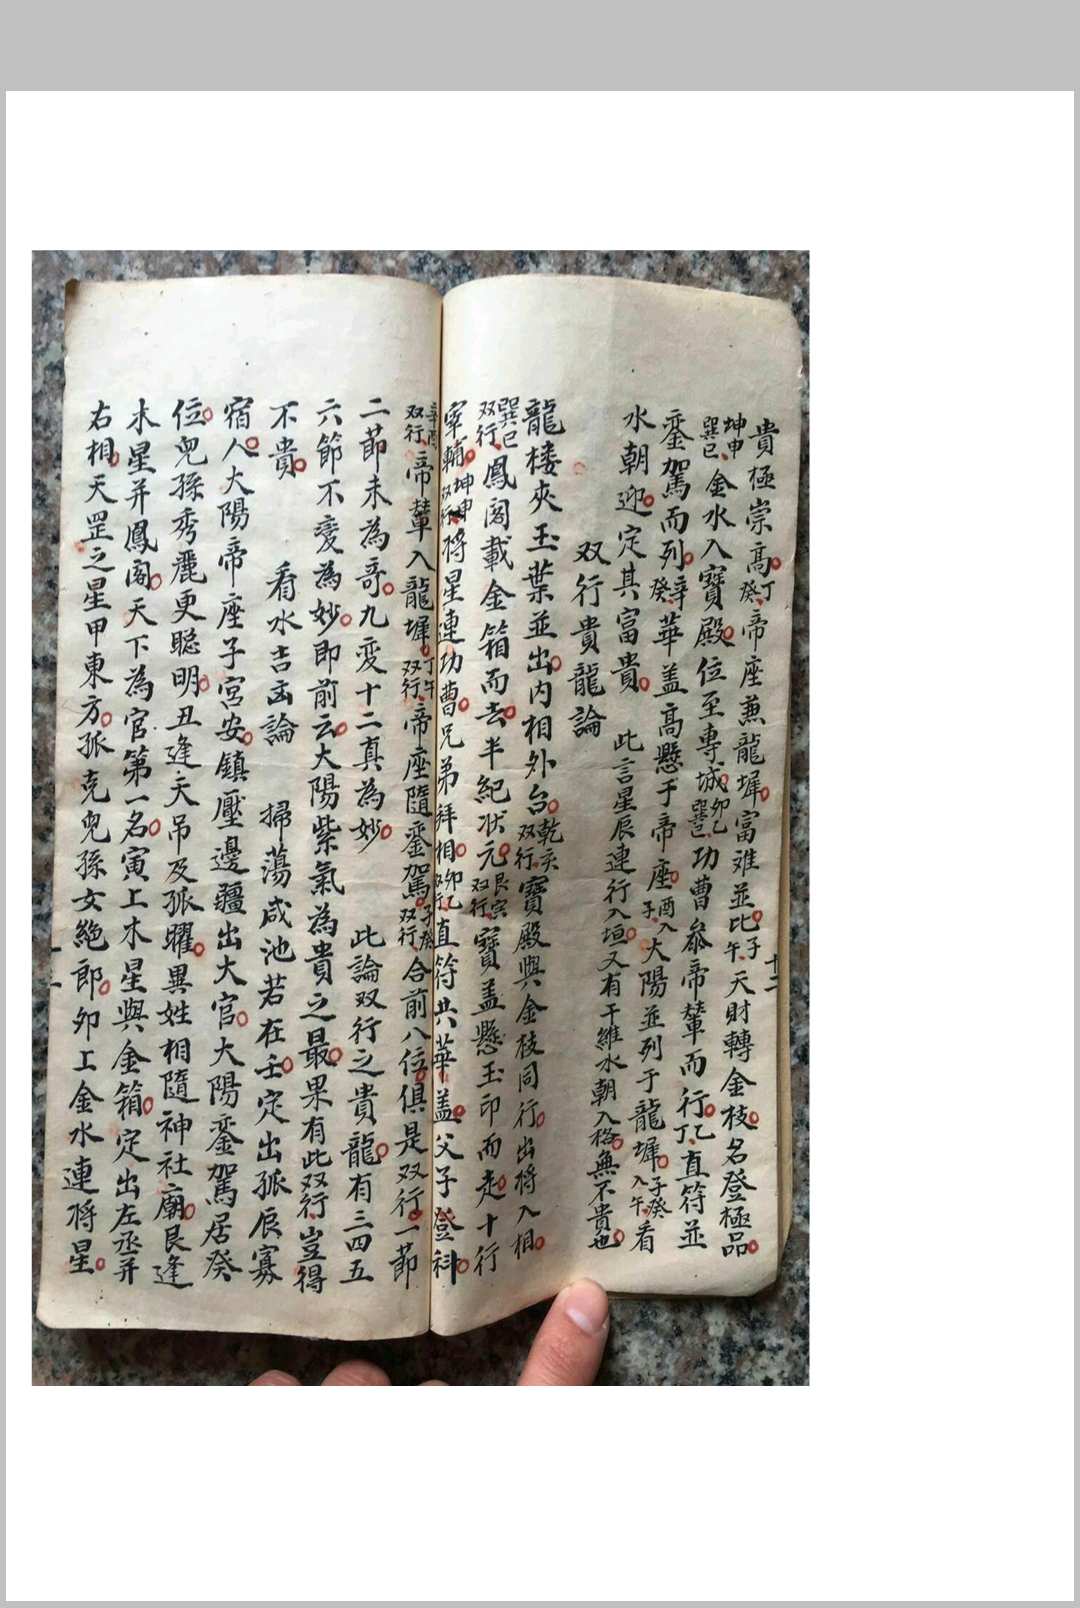 貴極崇高丁癸帝座兼龍墀富难並比子午天財轉金枝名登極品
坤申巽巳金水入寶殿位至專城卯乙巽巳功曹叅帝輦而行乙丁直符並
鑾駕而列辛癸華盖高懸于帝座酉子入大陽並列于龍墀子癸入午看
水朝迎定其富貴 此言星辰連行入垣又有干維水朝入格無不貴也
双行貴龍論
龍楼夾玉葉並出内相外台乾亥双行寶殿與金枝同行出将入相
巽巳双行鳳阁載金箱而去半紀状元艮寅双行寶盖懸玉印而走十行
宰輔坤申双行将星連功曹兄弟拜相卯乙双行直符共華盖父子登科
辛酉双行帝輦入龍墀丁午双行帝座隨鑾駕子癸双行合前八位俱是双行一節
二節未為哥九変十二真為妙 此論双行之貴龍有三四五
六節不変為妙即前云大陽紫氣為貴之最果有此双行豈得
不貴
看水吉凶論
掃蕩咸池若在壬定出孤辰寡
宿人大陽帝座子宮安鎮壓邊疆出大官大陽鑾駕居癸
位兒孫秀麗更聪明丑逢天吊及孤曜異姓相隨神社廟艮逢
木星并鳳阁天下為官第一名寅上木星與金箱定出左丞并
右相天罡之星甲東方孤克兒孫女絶郎卯上金水連将星
十二